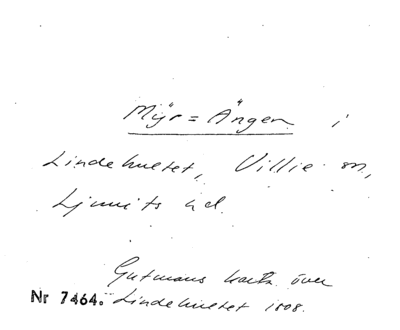 Myr = Ängen i
Lindehultet, Villie sn,
Ljunits hd.
Gutmans karta över
Nr 7464. Lindehultet 1808.